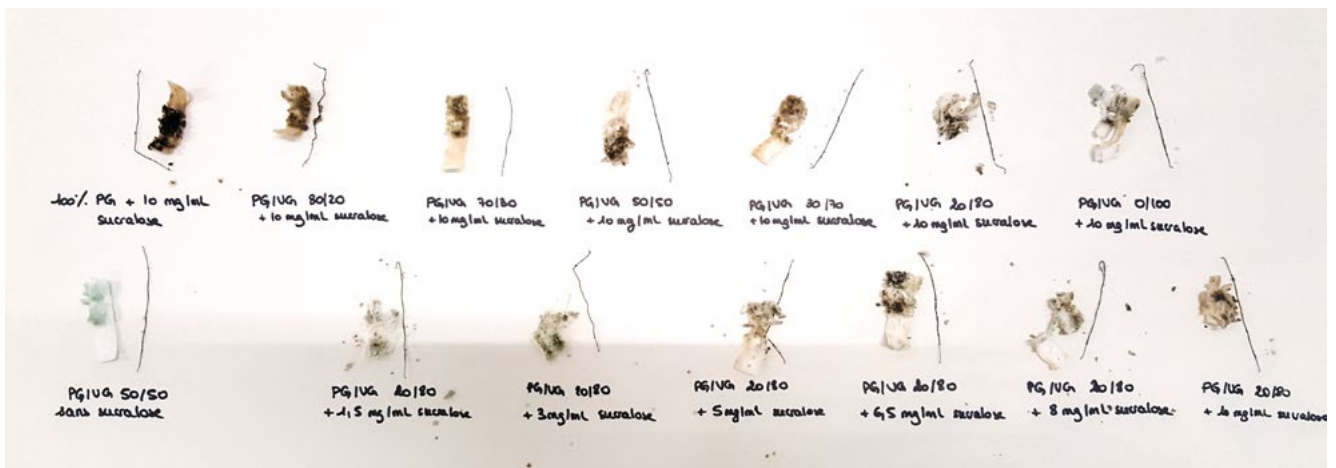 100% PG + 10 mg/mL
sucralose
PG/VG 80/20
+ 10 mg/mL sucralose
PG/VG 70/30
+ 10 mg/mL sucralose
PG/VG 50/50
+ 10 mg/mL sucralose
PG/VG 30/70
+ 10 mg/mL sucralose
PG/VG 20/80
+ 10 mg/mL sucralose
PG/VG 0/100
+ 10 mg/mL sucralose
PG/VG 50/50
sans sucralose
PG/VG 20/80
+ 1,5 mg/mL sucralose
PG/VG 20/80
+ 3 mg/mL sucralose
PG/VG 20/80
+ 5 mg/mL sucralose
PG/VG 20/80
+ 6,5 mg/mL sucralose
PG/VG 20/80
+ 8 mg/mL sucralose
PG/VG 20/80
+ 10 mg/mL sucralose